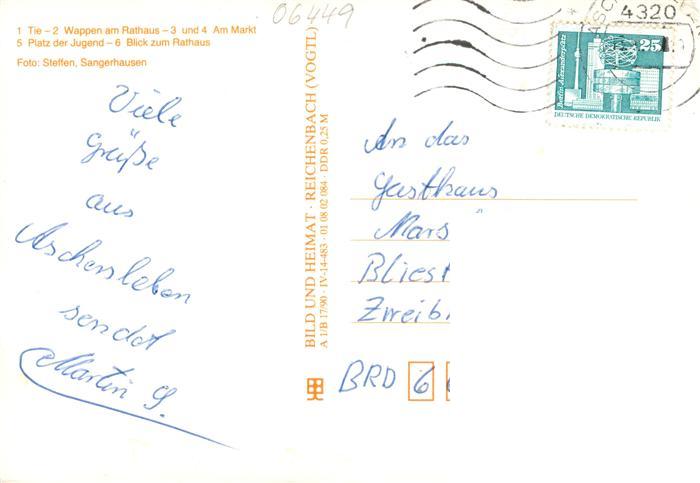 06449
1 Tie – 2 Wappen am Rathaus – 3 und 4 Am Markt
5 Platz der Jugend – 6 Blick zum Rathaus
Foto: Steffen, Sangerhausen
Viele
Grüße
aus
Aschersleben
sendet
Martin S.
BILD UND HEIMAT · REICHENBACH (VOGTL)
A 1/B 17/90 · IV-14-483 · 01 08 02 084 · DDR 0,25 M
4320
25
Berlin, Alexanderplatz
DEUTSCHE DEMOKRATISCHE REPUBLIK
An das
Gasthaus
"Mars
Bliest
Zweib
BRD 6